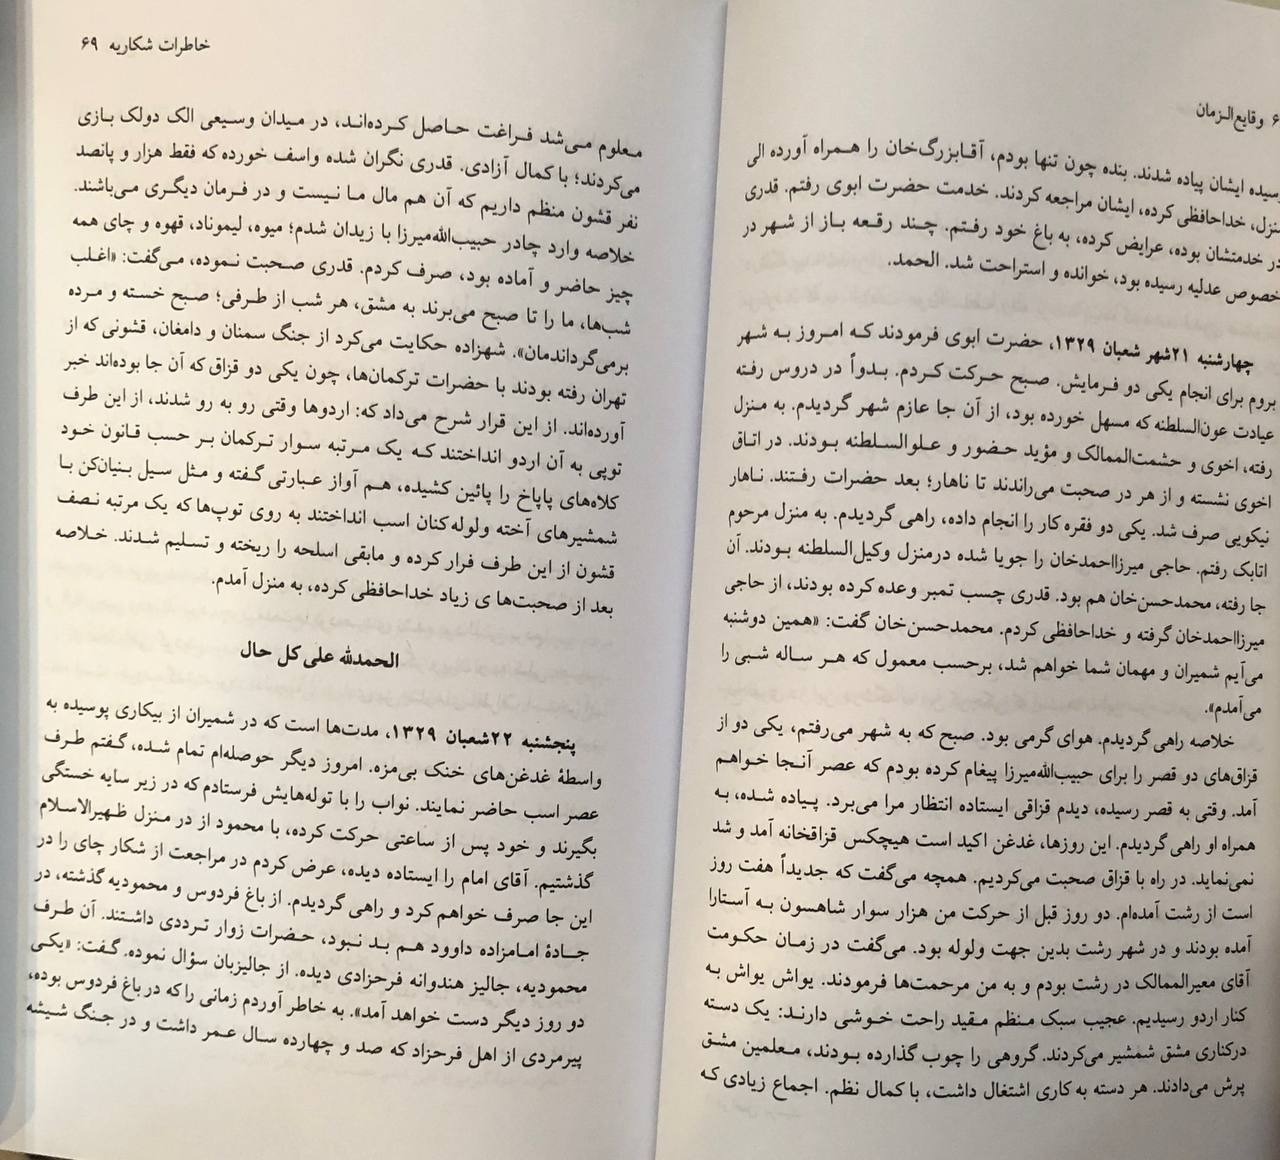 وقایع‌الزمان
رسیده ایشان پیاده شدند. بنده چون تنها بودم، آقابزرگ‌خان را همراه آورده الی
منزل، خداحافظی کرده، ایشان مراجعه کردند. خدمت حضرت ابوی رفتم. قدری
در خدمتشان بوده، عرایض کرده، به باغ خود رفتم. چند رقعه باز از شهر در
خصوص عدلیه رسیده بود، خوانده و استراحت شد. الحمد.
چهارشنبه ۲۱شهر شعبان ۱۳۲۹، حضرت ابوی فرمودند که امروز به شهر
بروم برای انجام یکی دو فرمایش. صبح حرکت کردم. بدواً در دروس رفته
عیادت عون‌السلطنه که مسهل خورده بود، از آن جا عازم شهر گردیدم. به منزل
رفته، اخوی و حشمت‌الممالک و مؤید حضور و علوالسلطنه بودند. در اتاق
اخوی نشسته و از هر در صحبت می‌راندند تا ناهار؛ بعد حضرات رفتند. ناهار
نیکویی صرف شد. یکی دو فقره کار را انجام داده، راهی گردیدم. به منزل مرحوم
اتابک رفتم. حاجی میرزااحمدخان را جویا شده درمنزل وکیل‌السلطنه بودند. آن
جا رفته، محمدحسن‌خان هم بود. قدری چسب تمبر وعده کرده بودند، از حاجی
میرزااحمدخان گرفته و خداحافظی کردم. محمدحسن‌خان گفت: «همین دوشنبه
می‌آیم شمیران و مهمان شما خواهم شد، برحسب معمول که هر ساله شبی را
می‌آمدم».
خلاصه راهی گردیدم. هوای گرمی بود. صبح که به شهر می‌رفتم، یکی دو از
قزاق‌های دو قصر را برای حبیب‌الله‌میرزا پیغام کرده بودم که عصر آنجا خواهم
آمد. وقتی به قصر رسیده، دیدم قزاقی ایستاده انتظار مرا می‌برد. پیاده شده، به
همراه او راهی گردیدم. این روزها، غدغن اکید است هیچکس قزاقخانه آمد و شد
نمی‌نماید. در راه با قزاق صحبت می‌کردیم. همچه می‌گفت که جدیداً هفت روز
است از رشت آمده‌ام. دو روز قبل از حرکت من هزار سوار شاهسون به آستارا
آمده بودند و در شهر رشت بدین جهت ولوله بود. می‌گفت در زمان حکومت
آقای معیرالممالک در رشت بودم و به من مرحمت‌ها فرمودند. یواش یواش به
کنار اردو رسیدیم. عجیب سبک منظم مقید راحت خوشی دارند: یک دسته
درکناری مشق شمشیر می‌کردند. گروهی را چوب گذارده بودند، معلمین مشق
پرش می‌دادند. هر دسته به کاری اشتغال داشت، با کمال نظم. اجماع زیادی که
خاطرات شکاریه ۶۹
معلوم می‌شد فراغت حاصل کرده‌اند، در میدان وسیعی الک دولک بازی
می‌کردند؛ با کمال آزادی. قدری نگران شده واسف خورده که فقط هزار و پانصد
نفر قشون منظم داریم که آن هم مال ما نیست و در فرمان دیگری می‌باشند.
خلاصه وارد چادر حبیب‌الله‌میرزا با زیدان شدم؛ میوه، لیموناد، قهوه و چای همه
چیز حاضر و آماده بود، صرف کردم. قدری صحبت نموده، می‌گفت: «اغلب
شب‌ها، ما را تا صبح می‌برند به مشق، هر شب از طرفی؛ صبح خسته و مرده
برمی‌گرداندمان». شهزاده حکایت می‌کرد از جنگ سمنان و دامغان، قشونی که از
تهران رفته بودند با حضرات ترکمان‌ها، چون یکی دو قزاق که آن جا بوده‌اند خبر
آورده‌اند. از این قرار شرح می‌داد که: اردوها وقتی رو به رو شدند، از این طرف
توپی به آن اردو انداختند که یک مرتبه سوار ترکمان بر حسب قانون خود
کلاه‌های پاپاخ را پائین کشیده، هم آواز عبارتی گفته و مثل سیل بنیان‌کن با
شمشیرهای آخته ولوله‌کنان اسب انداختند به روی توپ‌ها که یک مرتبه نصف
قشون از این طرف فرار کرده و مابقی اسلحه را ریخته و تسلیم شدند. خلاصه
بعد از صحبت‌ها ی زیاد خداحافظی کرده، به منزل آمدم.
الحمدلله علی کل حال
پنجشنبه ۲۲شعبان ۱۳۲۹، مدت‌ها است که در شمیران از بیکاری پوسیده به
واسطهٔ غدغن‌های خنک بی‌مزه. امروز دیگر حوصله‌ام تمام شده، گفتم طرف
عصر اسب حاضر نمایند. نواب را با توله‌هایش فرستادم که در زیر سایه خستگی
بگیرند و خود پس از ساعتی حرکت کرده، با محمود از در منزل ظهیرالاسلام
گذشتیم. آقای امام را ایستاده دیده، عرض کردم در مراجعت از شکار چای را در
این جا صرف خواهم کرد و راهی گردیدم. از باغ فردوس و محمودیه گذشته، در
جادهٔ امامزاده داوود هم بد نبود، حضرات زوار ترددی داشتند. آن طرف
محمودیه، جالیز هندوانه فرحزادی دیده. از جالیزبان سؤال نموده. گفت: «یکی
دو روز دیگر دست خواهد آمد». به خاطر آوردم زمانی را که در باغ فردوس بوده،
پیرمردی از اهل فرحزاد که صد و چهارده سال عمر داشت و در جنگ شیشه